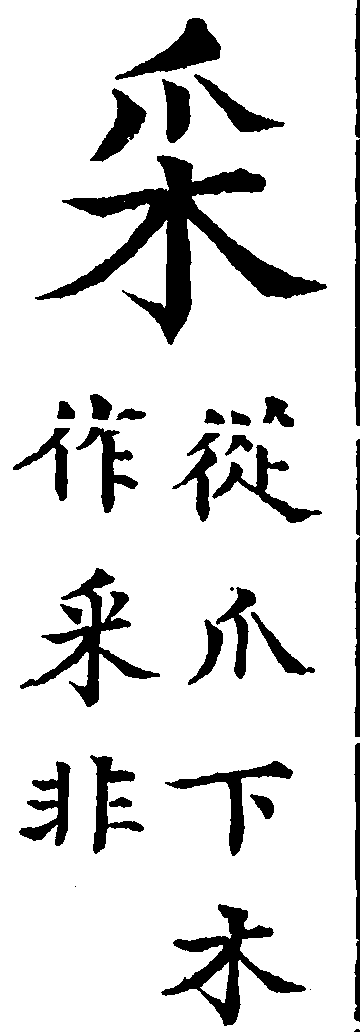 采
從爪下木
作釆非